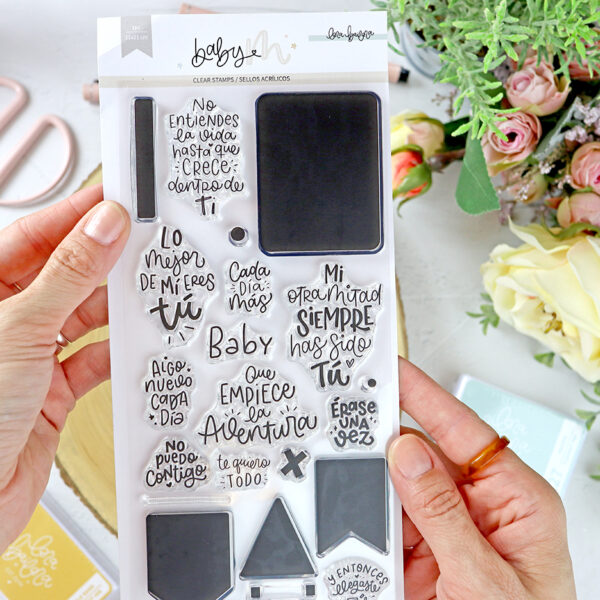 baby
CLEAR STAMPS / SELLOS ACRÍLICOS
No
ENTIENDES
la vida
hasta que
CRECE
dentro de
TI
Lo
mejor
DE MÍ ERES
tú
Cada
DÍA
más
Mi
otra mitad
SIEMPRE
has sido
TÚ
Baby
Algo
nuevo
CADA
DÍA
Que
EMPIECE
la
Aventura
ÉRASE
UNA
vez
No
PUEDO
Contigo
te quiero
TODO
Y ENTONCES
llegaste